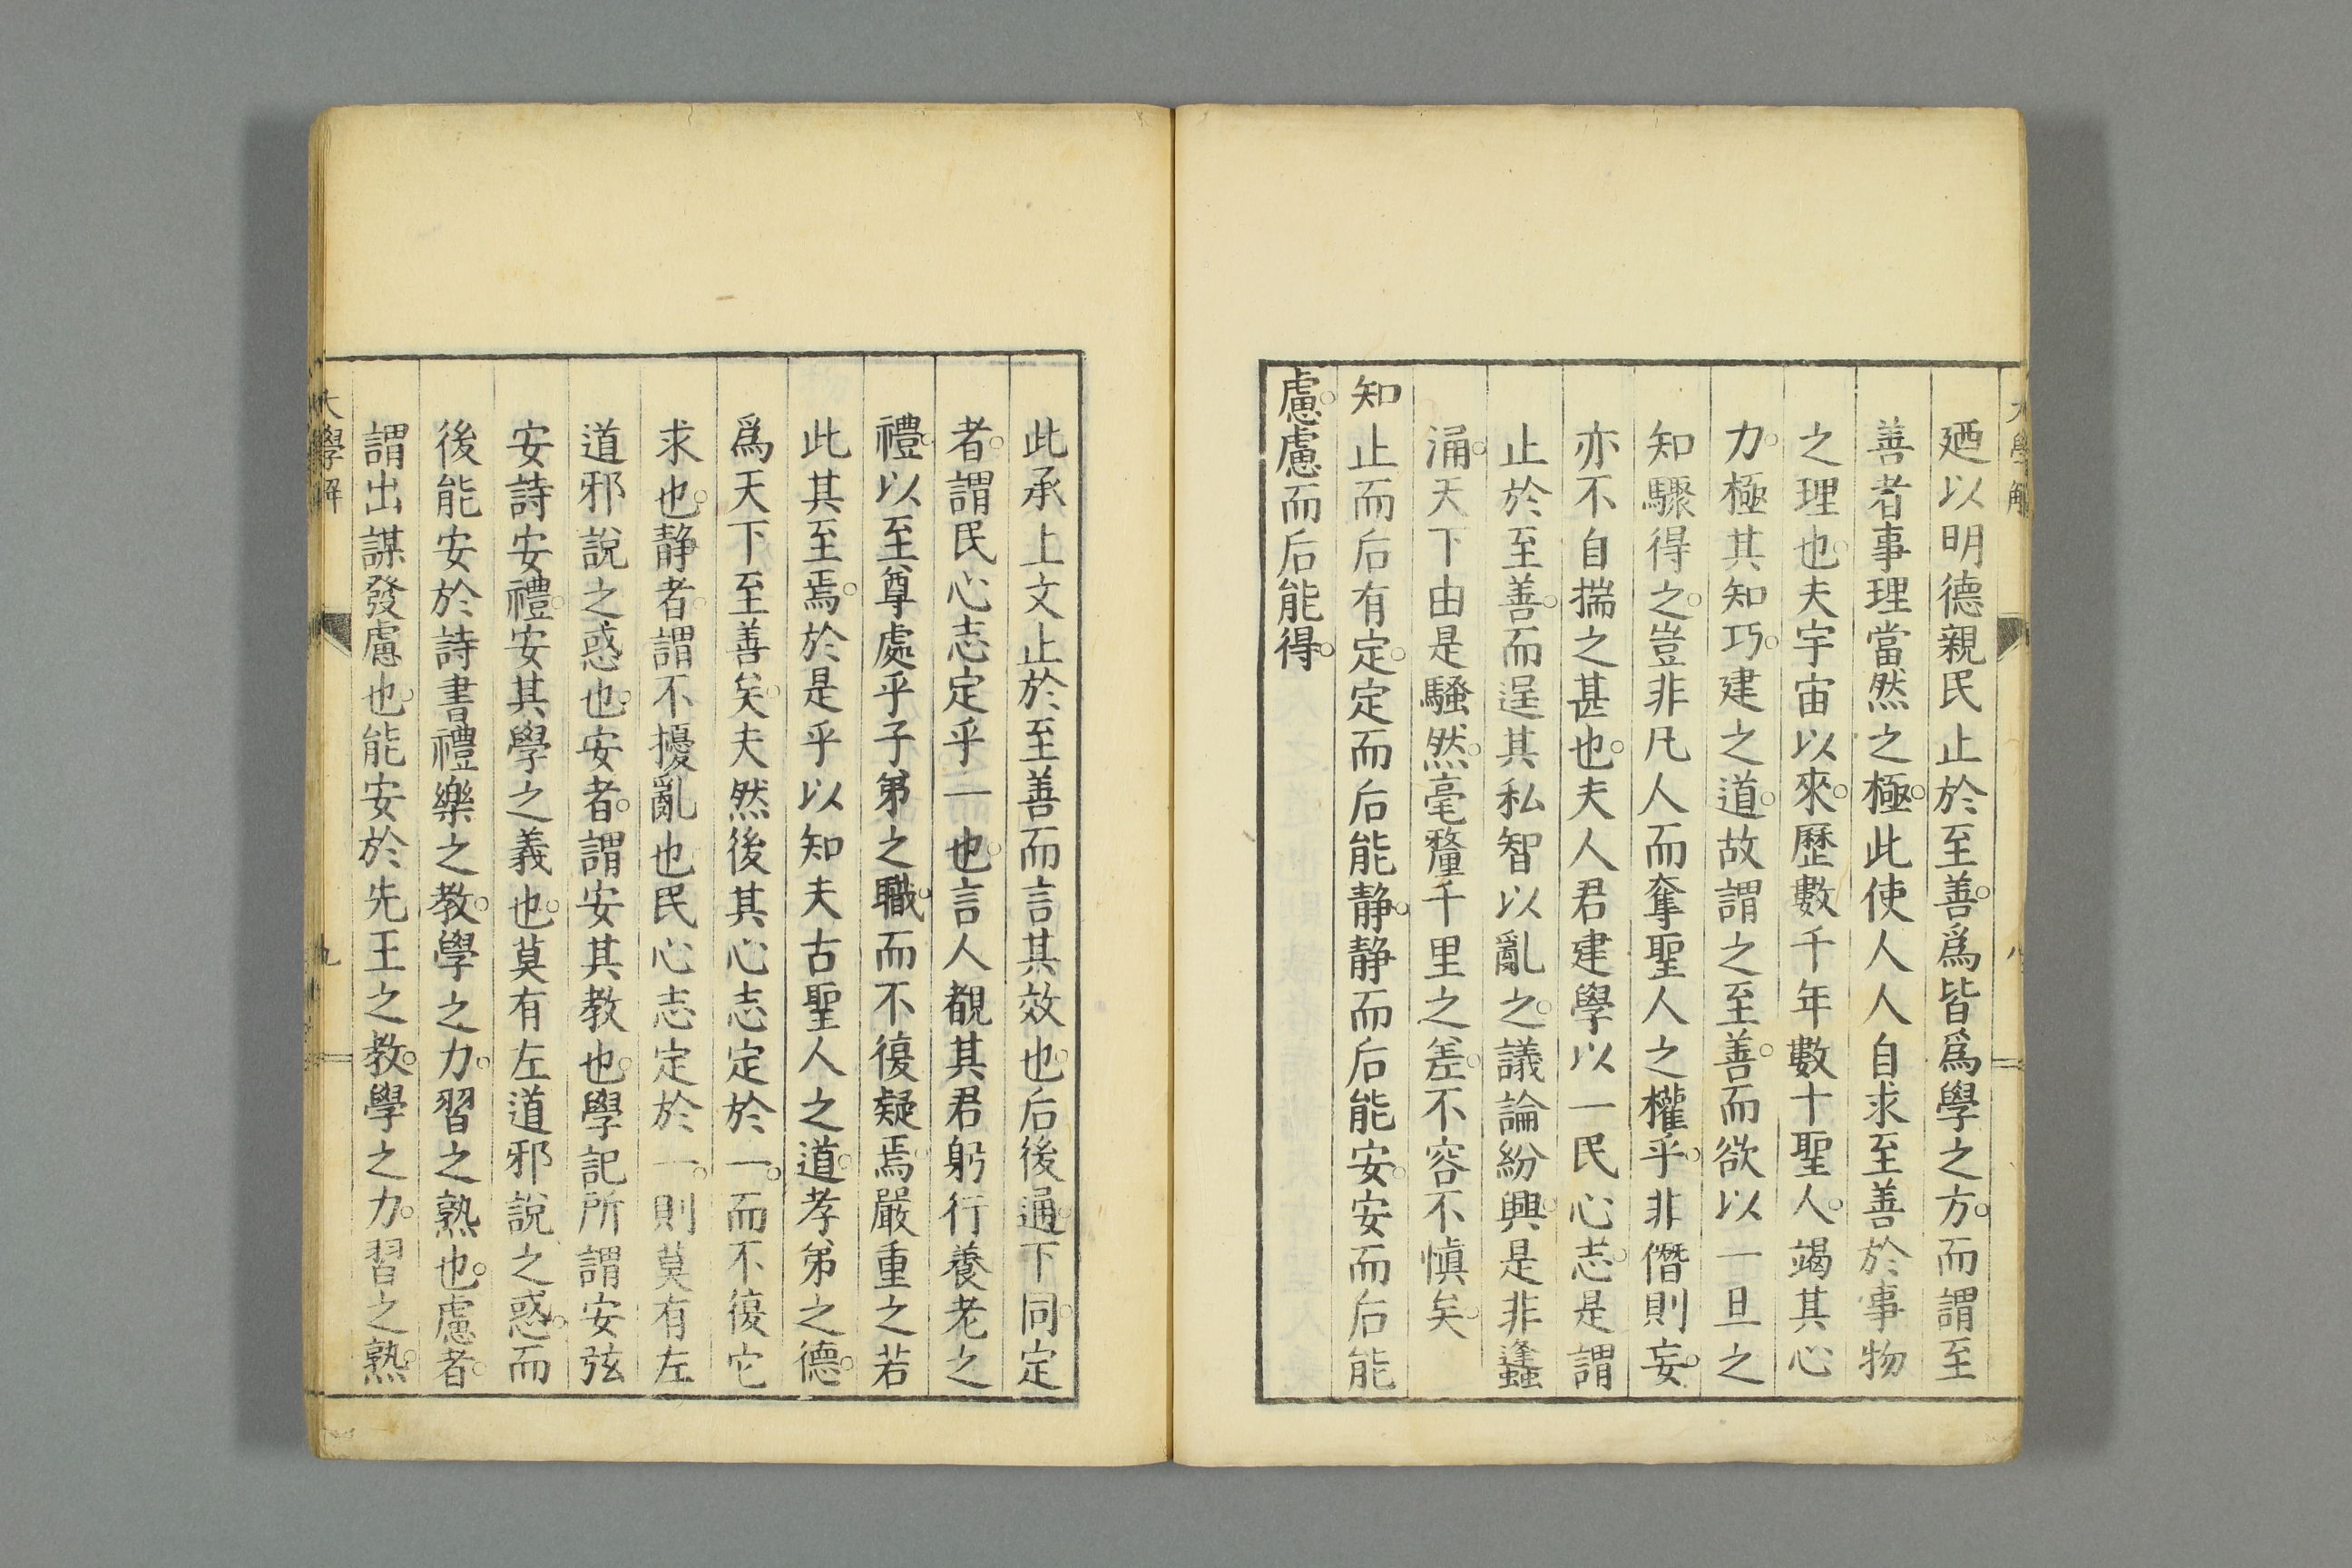 大學解
八
廼以明德親民止於至善爲皆爲學之方。而謂至
善者事理當然之極。此使人人自求至善於事物
之理也。夫宇宙以來。歷數千年數十聖人。竭其心
力。極其知巧。建之道。故謂之至善。而欲以一旦之
知驟得之。豈非凡人而奪聖人之權乎。非僭則妄。
亦不自揣之甚也。夫人君建學以一民心志。是謂
止於至善。而逞其私智以亂之。議論紛興。是非蠭
涌。天下由是騷然。毫釐千里之差。不容不慎矣。
知止而后有定。定而后能静。静而后能安。安而后能
慮。慮而后能得。
此承上文止於至善而言其效也。后後通。下同。定
者。謂民心志定乎一也。言人覩其君躬行養老之
禮。以至尊處乎子弟之職。而不復疑焉。嚴重之若
此其至焉。於是乎以知夫古聖人之道。孝弟之德。
爲天下至善矣。夫然後其心志定於一。而不復它
求也。静者。謂不擾亂也民心志定於一。則莫有左
道邪說之惑也。安者。謂安其教也。學記所謂安弦
安詩安禮。安其學之義也。莫有左道邪說之惑。而
後能安於詩書禮樂之教。學之力。習之熟也。慮者。
謂出謀發慮也。能安於先王之教。學之力。習之熟。
大學解
九